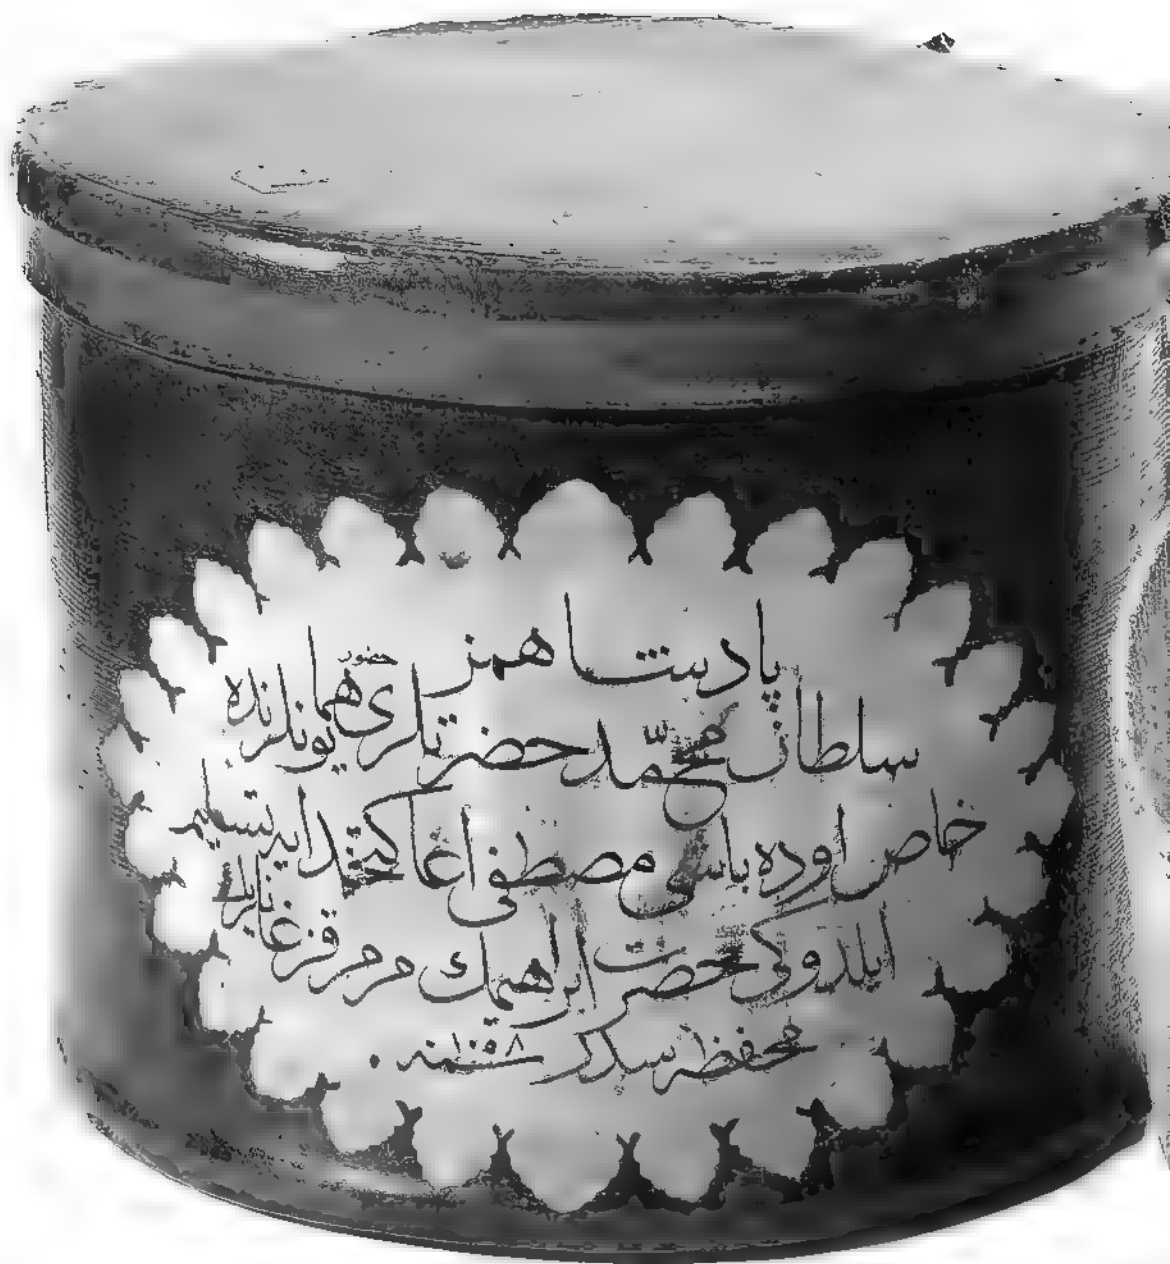 پادشاهمز
سلطان محمد حضرتلری حضور همایونلرنده
خاص اوده باشی مصطفی اغا کتخدایه تسلیم
ایلدوکی حضرت ابراهیمك مرمر قزغانلری
محفظه سیدر سنه ۱۰۹۸